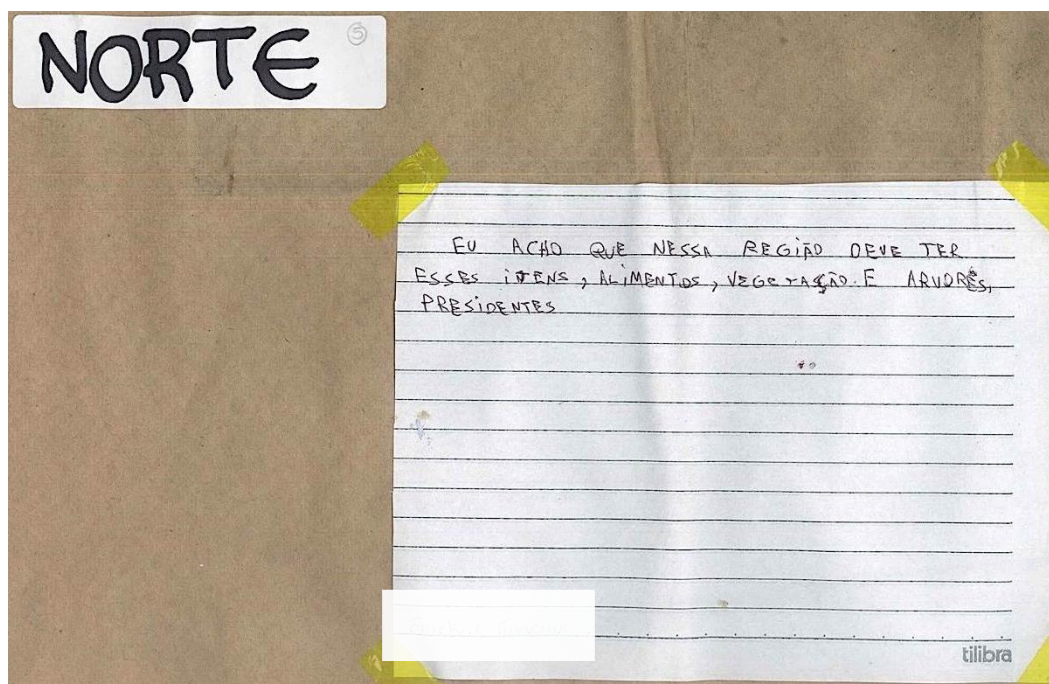 NORTE
5
EU ACHO QUE NESSA REGIÃO DEVE TER
ESSES ITENS, ALIMENTOS, VEGETAÇÃO. E ARVORES,
PRESIDENTES
tilibra